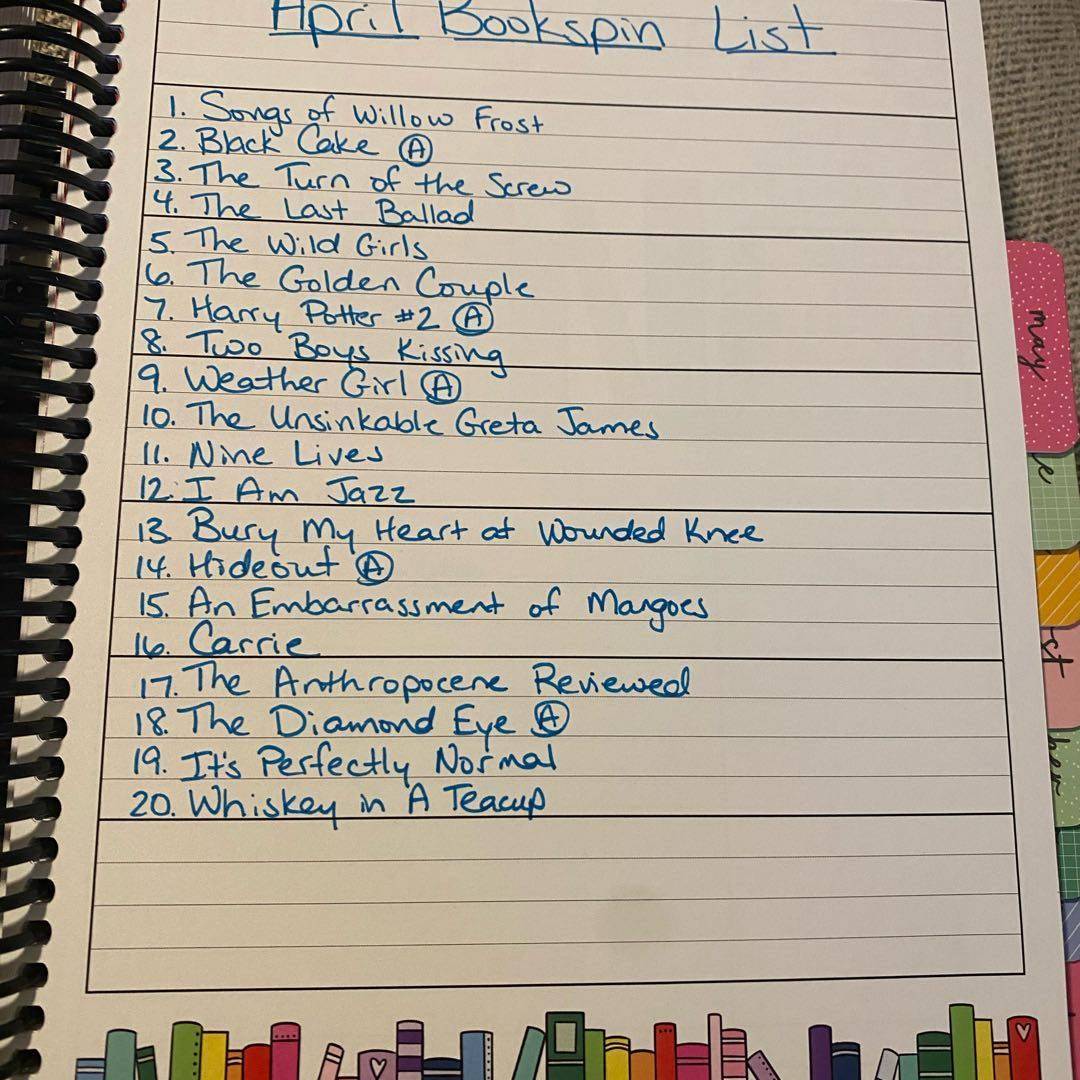 April Bookspin List
1. Songs of Willow Frost
2. Black Cake Ⓐ
3. The Turn of the Screw
4. The Last Ballad
5. The Wild Girls
6. The Golden Couple
7. Harry Potter #2 Ⓐ
8. Two Boys Kissing
9. Weather Girl Ⓐ
10. The Unsinkable Greta James
11. Nine Lives
12. I Am Jazz
13. Bury My Heart at Wounded Knee
14. Hideout Ⓐ
15. An Embarrassment of Mangoes
16. Carrie
17. The Anthropocene Reviewed
18. The Diamond Eye Ⓐ
19. It's Perfectly Normal
20. Whiskey in A Teacup
may